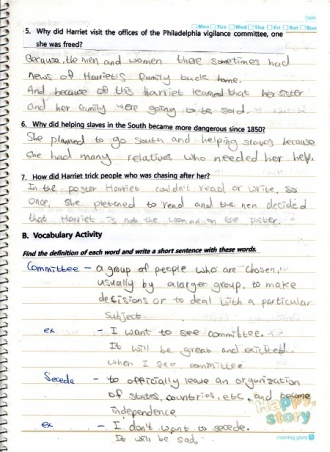 Mon Tue Wed Thu Fri Sat Sun
5. Why did Harriet visit the offices of the Philadelphia vigilance committee, one
she was freed?
Because, the men and women there sometimes had
news of Harriet's family back home.
And because of this Harriet learned that her sister
and her family were going to be sold.
6. Why did helping slaves in the South become more dangerous since 1850?
She planned to go South and helping slaves because
she had many relatives who needed her help.
7. How did Harriet trick people who was chasing after her?
In the poster Harriet couldn't read or write, so
Once, she pretened to read and the men decided
that Harriet is not the woman on the poster.
B. Vocabulary Activity
Find the definition of each word and write a short sentence with these words.
Committee - a group of people who are chosen,
usually by a larger group, to make
decisions or to deal with a particular
subject.
ex - I want to see committee.
It will be great and excited
when I see committee
Secede - to officially leave an organization
of states, countries, etc, and become
independence
ex - I don't want to secede.
It will be sad.
Happy
story